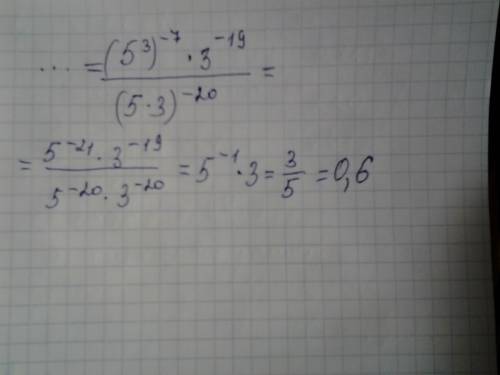 ... = (5³)⁻⁷ · 3⁻¹⁹ / (5·3)⁻²⁰ =
= 5⁻²¹ · 3⁻¹⁹ / 5⁻²⁰ · 3⁻²⁰ = 5⁻¹ · 3 = 3/5 = 0,6